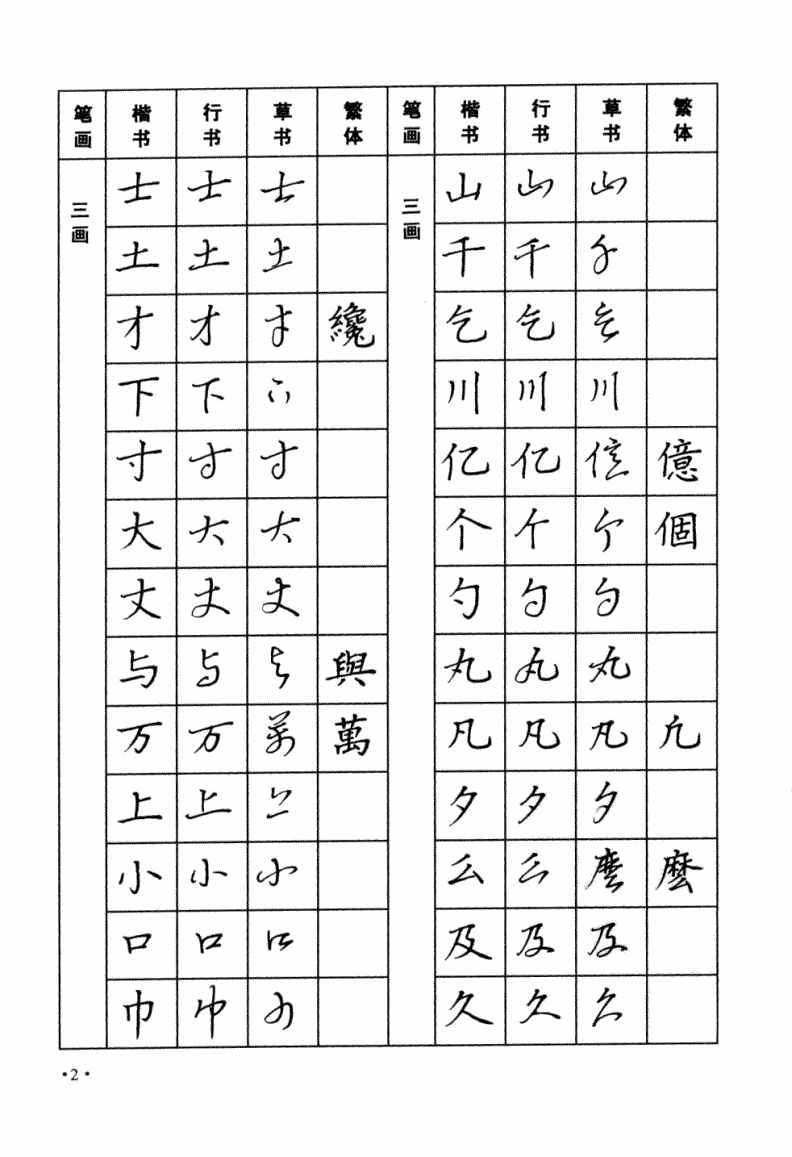 笔画 楷书 行书 草书 繁体 笔画 楷书 行书 草书 繁体
三画 士 士 士 三画 山 山 山
土 土 土 千 千 千
才 才 才 纔 乞 乞 乞
下 下 下 川 川 川
寸 寸 寸 亿 亿 億 億
大 大 大 个 个 个 個
丈 丈 丈 勺 勺 勺
与 与 与 與 丸 丸 丸
万 万 萬 萬 凡 凡 凡
上 上 上 夕 夕 夕
小 小 小 么 么 麼 麼
口 口 口 及 及 及
巾 巾 巾 久 久 久
·2·